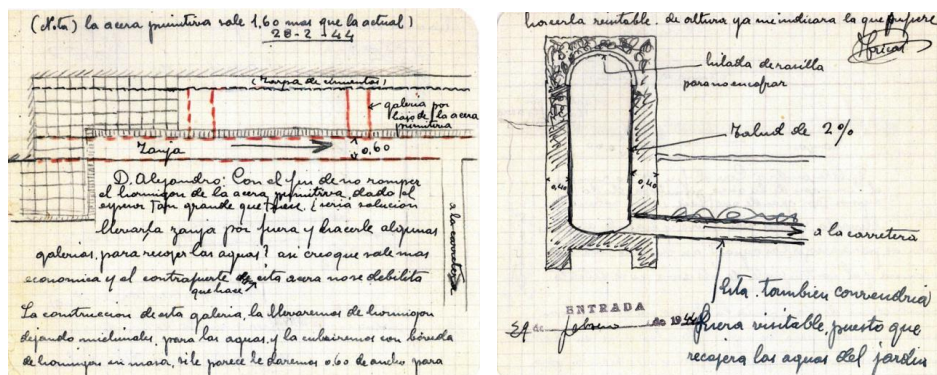 (Nota) la acera primitiva sale 1,60 mas que la actual)
28-2-44
(Zarpa de cimientos)
galeria por
bajo de la acera
primitiva
Zanja
0,60
D. Alejandro: Con el fin de no romper
el hormigon de la acera primitiva, dado el
espesor tan grande que tiene, ¿seria solucion
llevar la zanja por fuera y hacerle algunas
galerias, para recojer las aguas? asi creo que sale mas
economica y el contrafuerte que hace esta acera no se debilita
a la carretera
La construccion de esta galeria, la llevaremos de hormigon
dejando mielinales, para las aguas, y la cubriremos con bóveda
de hormigon en masa, si le parece le daremos 0,60 de ancho para
hacerla visitable. de altura ya me indicara la que quiere
hilada de rasilla
para no encofrar
Talud de 2%
0,40
0,40
a la carretera
Esta. tambien convendria
fuera visitable, puesto que
recojera las aguas del jardin
ENTRADA
29 de febrero de 1944